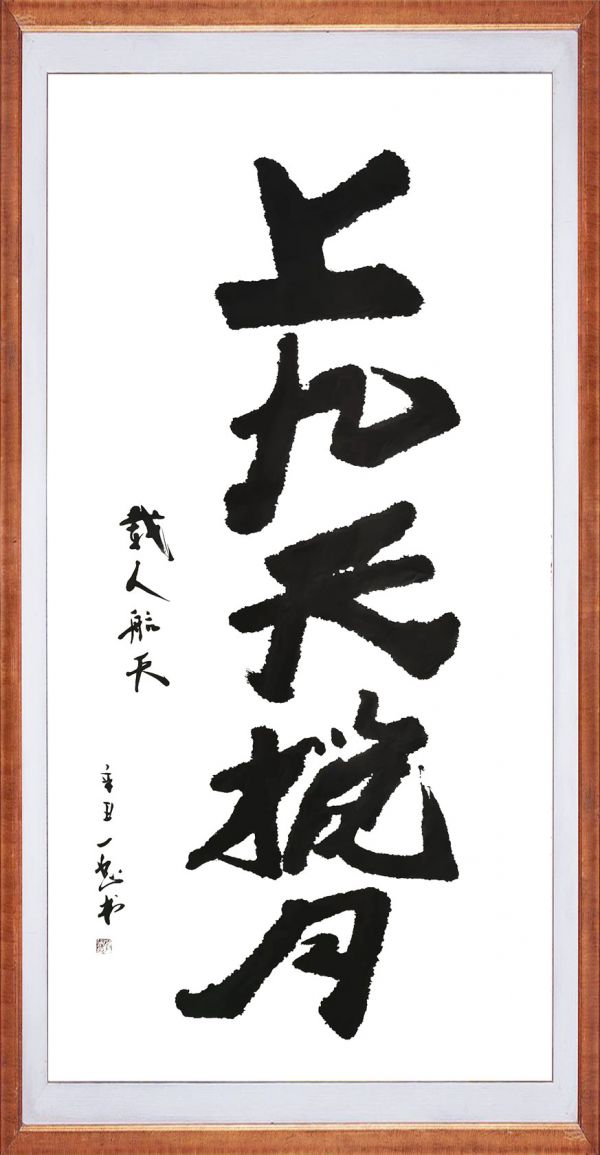 上九天揽月
载人航天
辛丑一
书